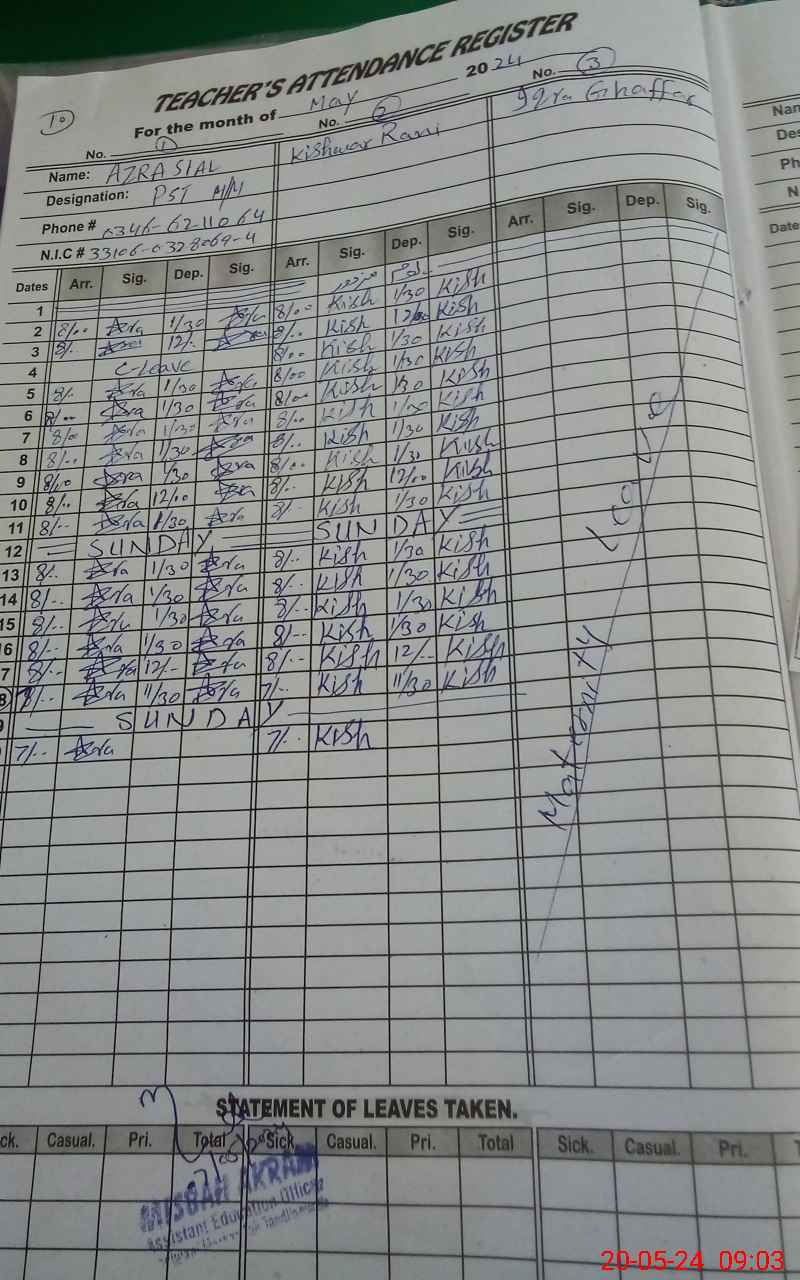 TEACHER'S ATTENDANCE REGISTER
10 For the month of May 2024
No. 1 No. 2 No. 3
Name: AZRA SIAL Kishwar Rani Iqra Ghaffar
Designation: PST M/M
Phone # 0346-6211064
N.I.C # 33106-0328069-4
Dates Arr. Sig. Dep. Sig. Arr. Sig. Dep. Sig. Arr. Sig. Dep. Sig.
1
2 8/00 Azra 1/30 Azra 8/00 Kish 1/30 Kish
3 8/.. Azra 12/. Azra 8/.. Kish 12/00 Kish
4 C-Leave 8/00 Kish 1/30 Kish
5 8/. Azra 1/30 Azra 8/00 Kish 1/30 Kish
6 8/.. Azra 1/30 Azra 8/00 Kish 1/30 Kish
7 8/00 Azra 1/30 Azra 8/00 Kish 1/00 Kish
8 8/.. Azra 1/30 Azra 8/.. Kish 1/30 Kish
9 8/00 Azra 1/30 Azra 8/00 Kish 1/30 Kish
10 8/.. Azra 12/00 Azra 8/.. Kish 12/00 Kish
11 8/.. Azra 1/30 Azra 8/.. Kish 1/30 Kish
12 SUNDAY SUNDAY
13 8/.. Azra 1/30 Azra 8/.. Kish 1/30 Kish
14 8/.. Azra 1/30 Azra 8/.. Kish 1/30 Kish
15 8/.. Azra 1/30 Azra 8/.. Kish 1/30 Kish
16 8/.. Azra 1/30 Azra 8/.. Kish 1/30 Kish
7 8/.. Azra 12/.. Azra 8/.. Kish 12/.. Kish
8 7/.. Azra 11/30 Azra 7/.. Kish 11/30 Kish
SUNDAY
7/.. Azra 7/.. Kish
Maternity Leave
STATEMENT OF LEAVES TAKEN.
ck. Casual. Pri. Total Sick. Casual. Pri. Total Sick. Casual. Pri.
MISBAH AKRAM
Assistant Education Officer
Nam
Des
Ph
N
Date
20-05-24 09:03